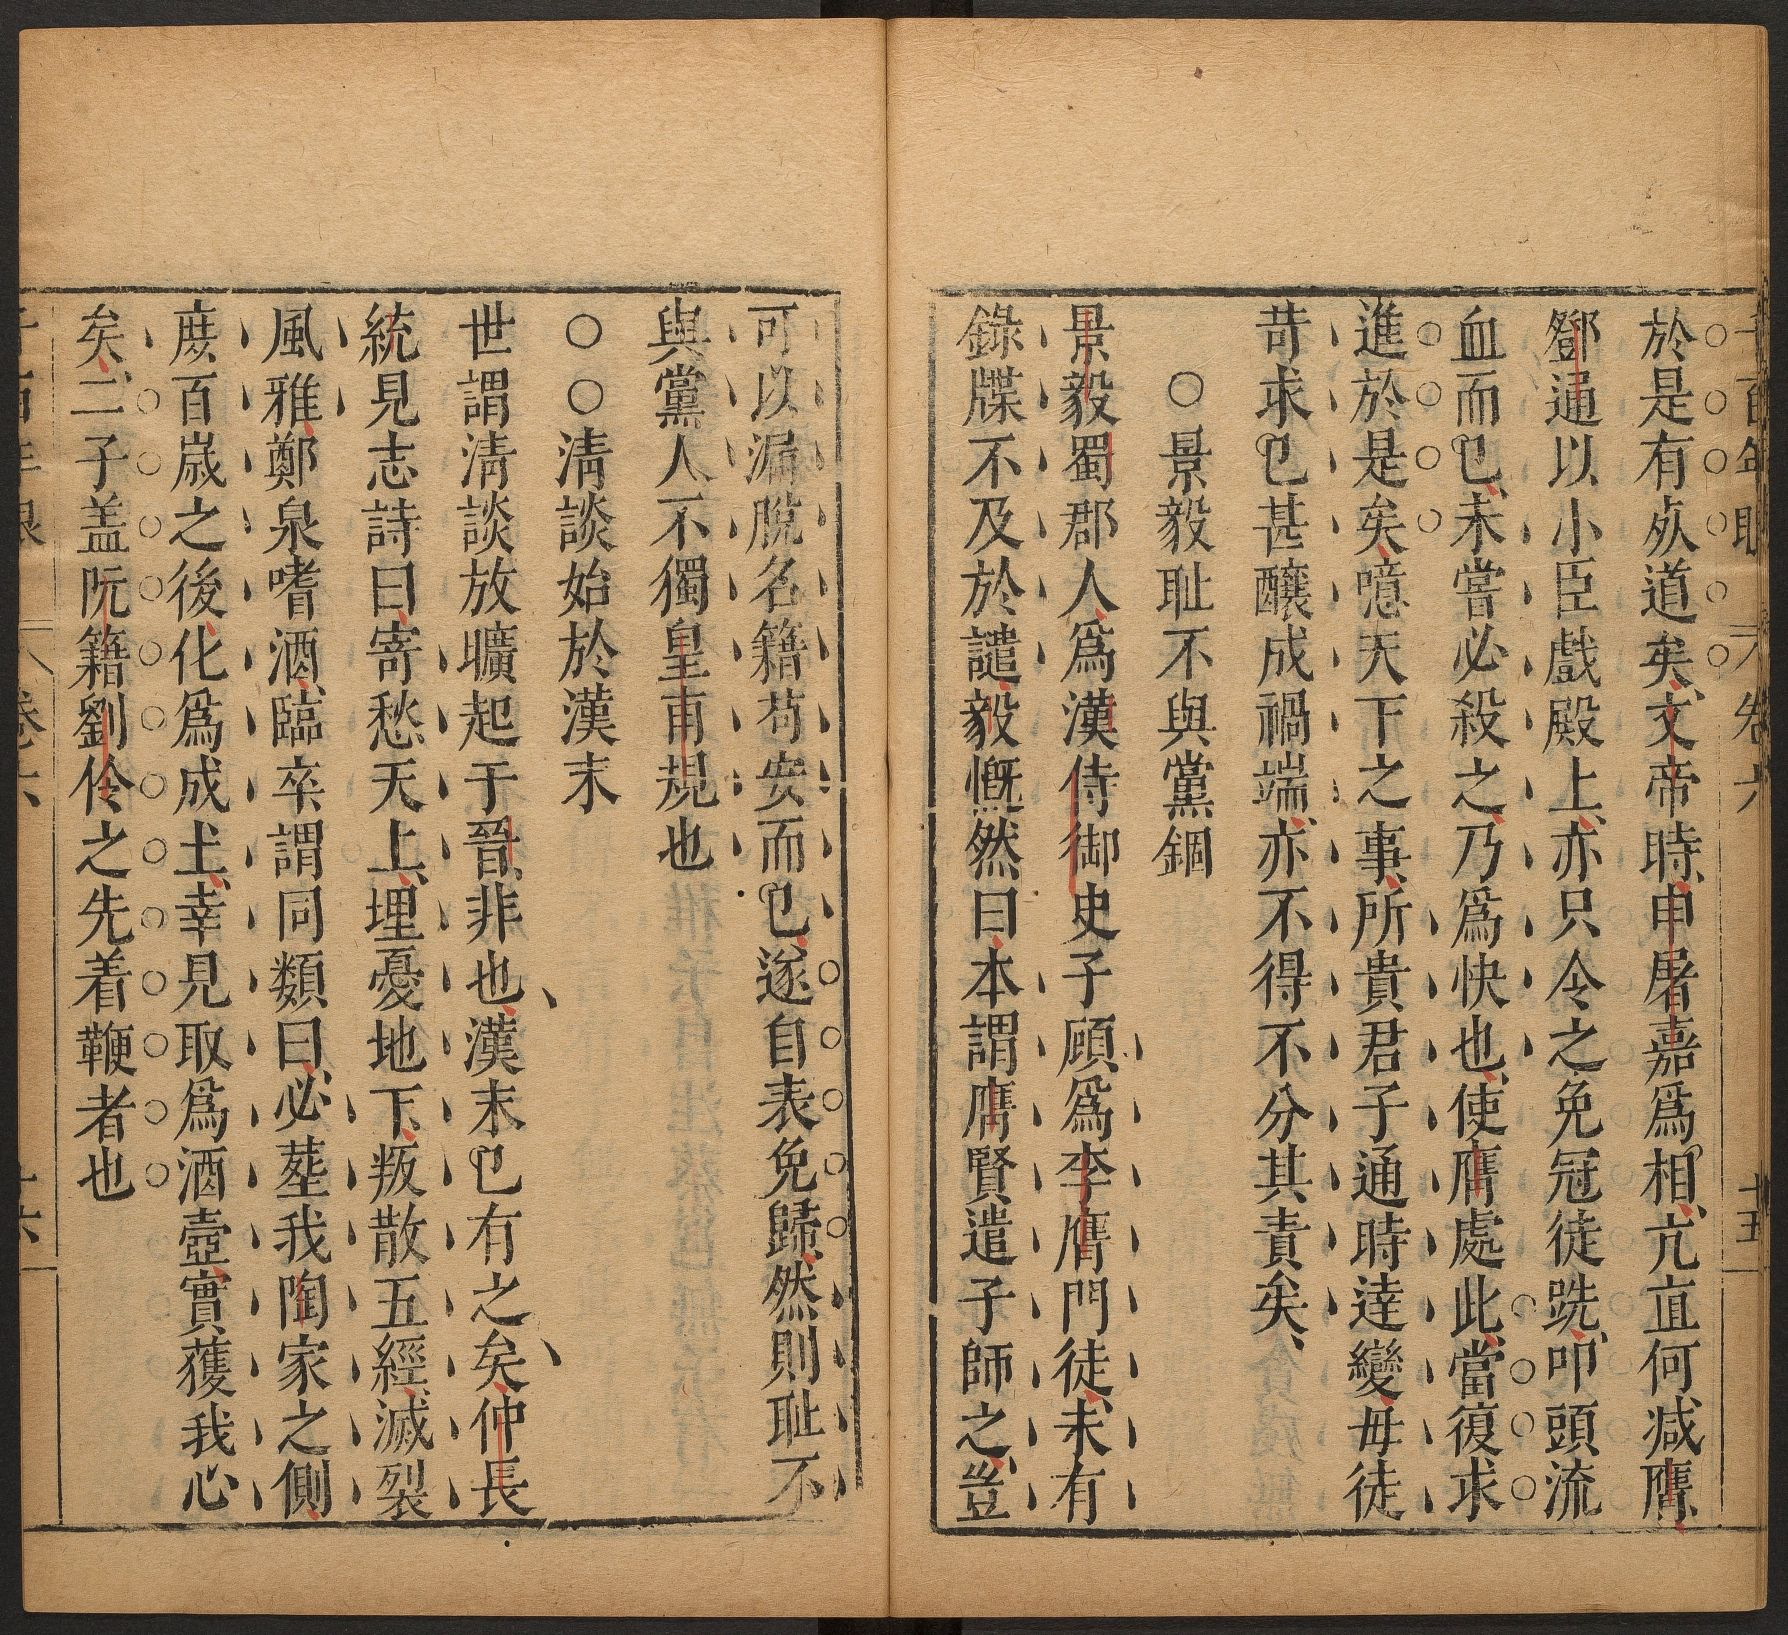 於是有處道矣文帝時申屠嘉爲相亢直何减膺
鄧通以小臣戲殿上亦只令之免冠徒跣叩頭流
血而已未嘗必殺之乃爲快也使膺處此當復求
進於是矣噫天下之事所貴君子通時達變毋徒
苛求已甚釀成禍端亦不得不分其責矣
○景毅耻不與黨錮
景毅蜀郡人爲漢侍御史子顧爲李膺門徒未有
錄牒不及於譴毅慨然曰本謂膺賢遣子師之豈
可以漏脫名籍苟安而已遂自表免歸然則耻不
與黨人不獨皇甫規也
○○清談始於漢末
世謂淸談放曠起于晉非也漢末已有之矣仲長
統見志詩曰寄愁天上埋憂地下叛散五經滅裂
風雅鄭泉嗜酒臨卒謂同類曰必塟我陶家之側
庶百歲之後化爲成土幸見取爲酒壺實獲我心
矣二子盖阮籍劉伶之先着鞭者也
卷六